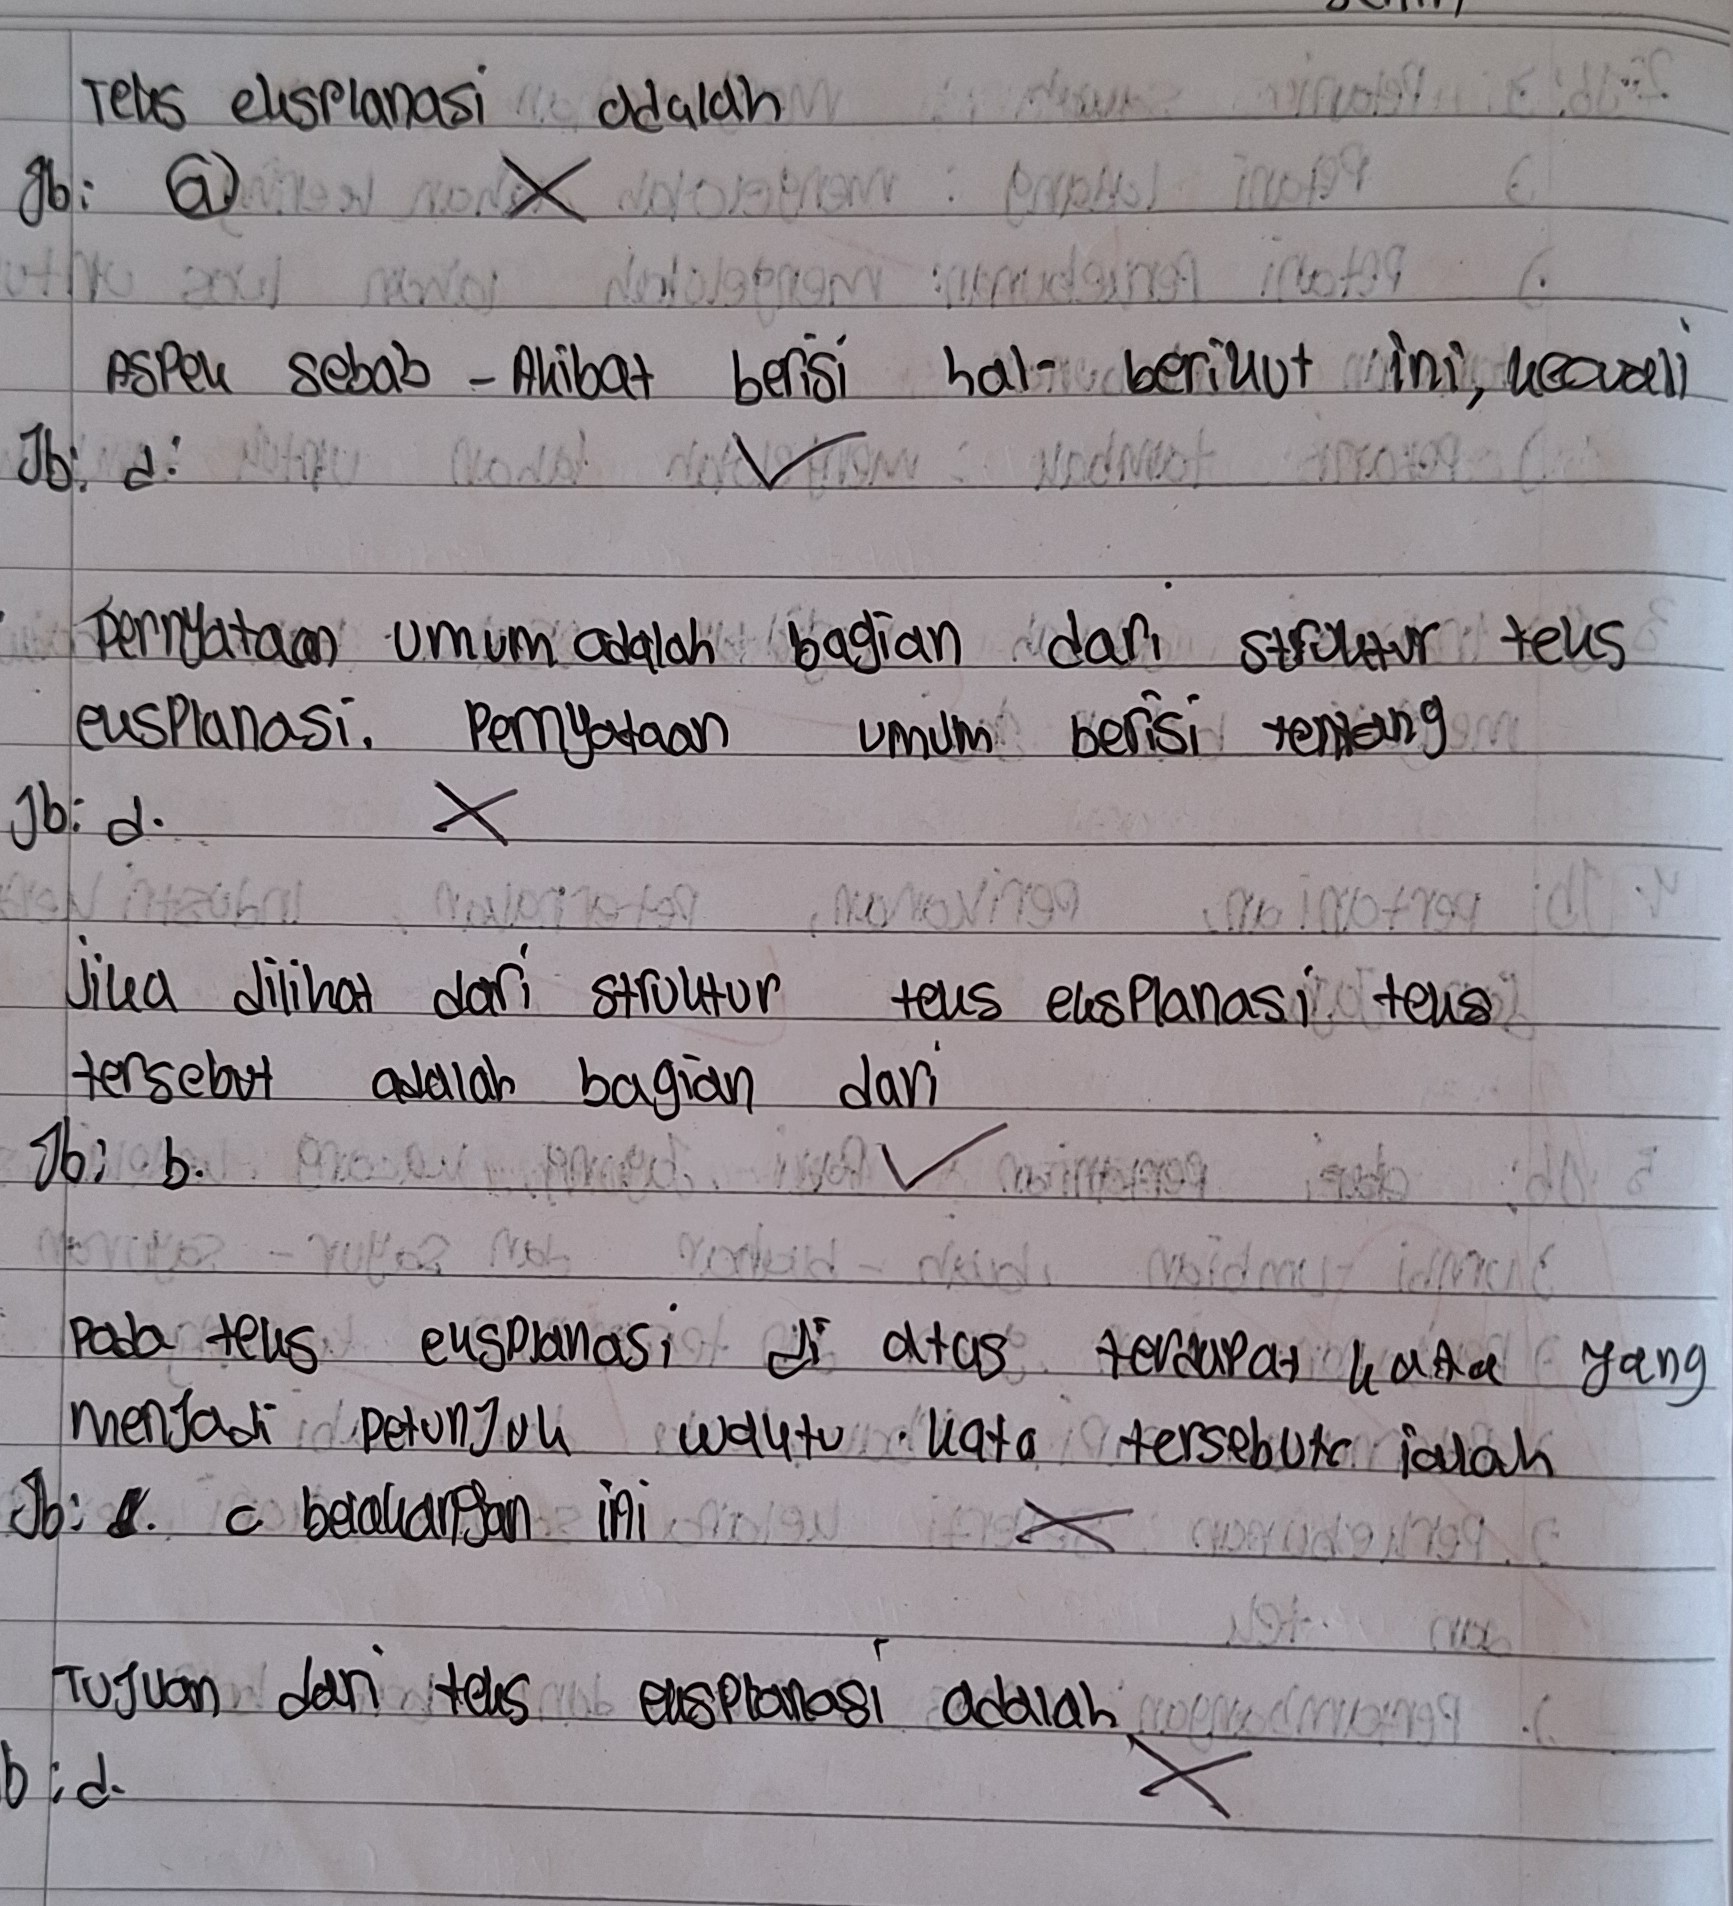 Teks eksplanasi adalah
Jb: a
Aspek sebab - Akibat berisi hal- berikut ini, kecuali
Jb: d.
Pernyataan umum adalah bagian dari struktur teks
eksplanasi. Pernyataan umum berisi tentang
Jb: d.
Jika dilihat dari struktur teks eksplanasi teks
tersebut adalah bagian dari
Jb: b.
Pada teks eksplanasi di atas terdapat kata yang
menjadi petunjuk waktu. kata tersebut ialah
Jb: c belakangan ini
Tujuan dari teks eksplanasi adalah
b: d.